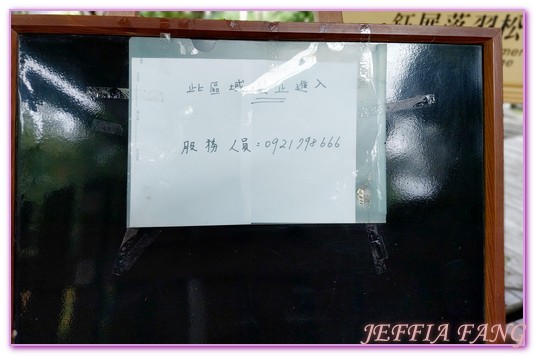 紅屋落羽松
此區域禁止進入
服務人員:0921798666
JEFFIA FANG